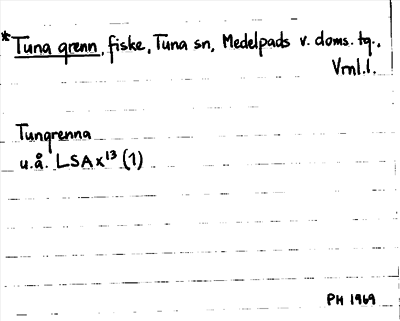 *Tuna grenn, fiske, Tuna sn, Medelpads v. doms. tg.,
Vrml.l.
Tungrenna
u.å. LSAx¹³ (1)
PH 1969